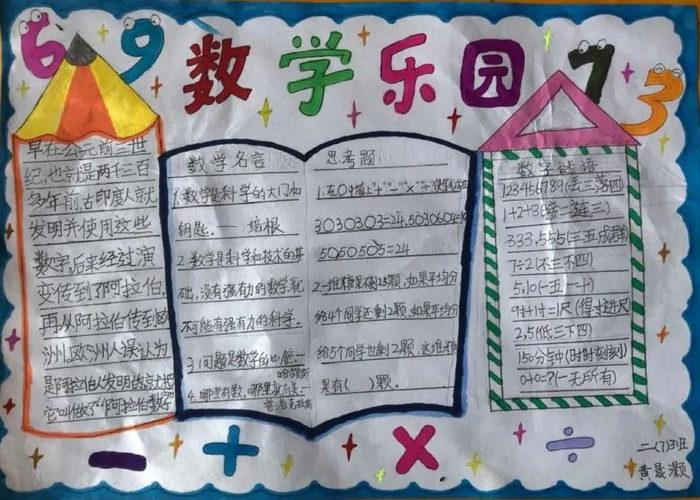 6 9 数学乐园 7 3
早在公元前三世
纪,也就是两千三百
多年前古印度人就
发明并使用这些
数字,后来经过演
变传到了阿拉伯,
再从阿拉伯传到欧
洲,欧洲人误认为
是阿拉伯人发明的,就把
它叫做了“阿拉伯数字”
数学名言
1.数学是科学的大门和
钥匙.——培根
2.数学是科学和技术的基
础,没有强有力的数学,就
不可能有强有力的科学。
3.问题是数学的心脏—
哈尔莫斯
4.哪里有数,哪里就有美—
普洛克拉斯
思考题
1.在O中填上“+”“-”“×”“÷”
3O3O3O3=24,5O3O6O4=
5O5O5O5=24
2.一堆糖果不到25颗,如果平均分
给4个同学还剩2颗,如果平均分
给5个同学也剩2颗,这堆糖
果有( )颗。
数字谜语
12346789(丢三落四)
1+2+3(接二连三)
333,555(三五成群)
7÷2(不三不四)
5,10(一五一十)
9寸+1寸=1尺(得寸进尺)
2,5(低三下四)
15分钟(时时刻刻)
0+0=?(一无所有)
- + × ÷
二(7)班
黄晟灏